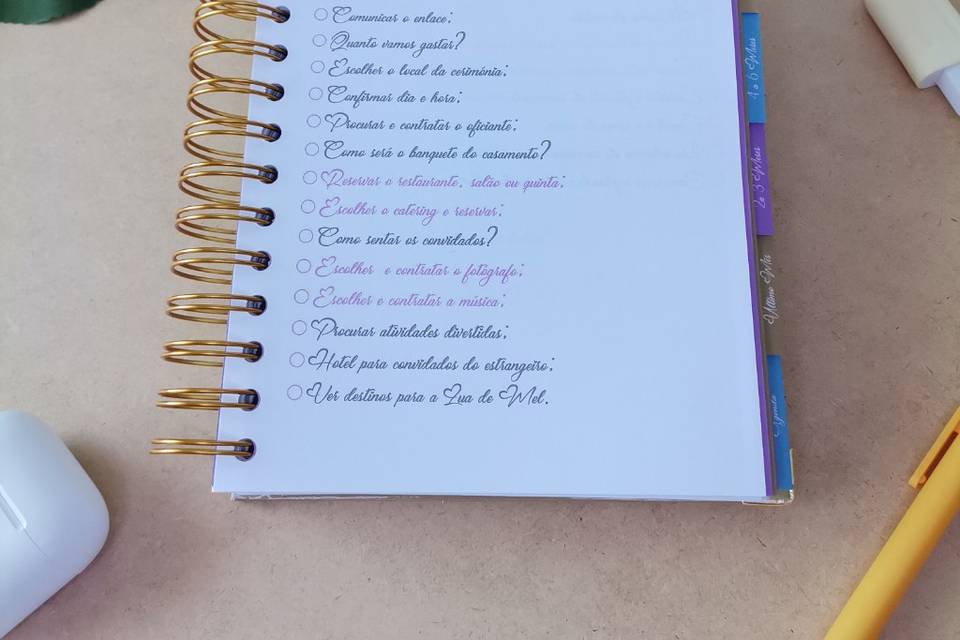 Comunicar o enlace;
Quanto vamos gastar?
Escolher o local da cerimónia;
Confirmar dia e hora;
Procurar e contratar o oficiante;
Como será o banquete do casamento?
Reservar o restaurante, salão ou quinta;
Escolher o catering e reservar;
Como sentar os convidados?
Escolher e contratar o fotógrafo;
Escolher e contratar a música;
Procurar atividades divertidas;
Hotel para convidados do estrangeiro;
Ver destinos para a Lua de Mel.
4 a 6 Meses
2a 3 Meses
Último Mês